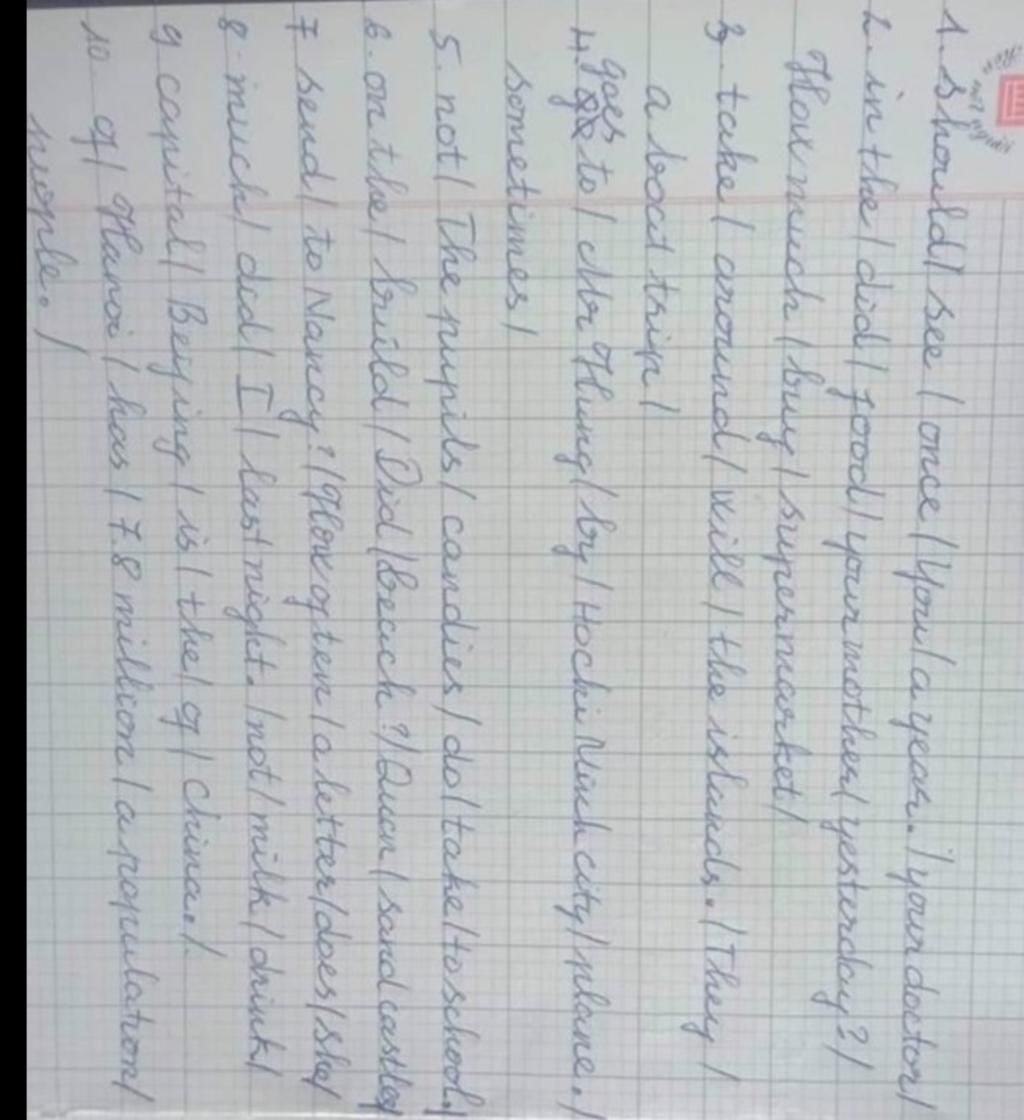 1. should / see / once / You / a year. / your doctor /
2. in the / did / food / your mother / yesterday? /
How much / buy / supermarket /
3. take / around / will / the islands. / They /
a boat trip /
goes
4. to / Mr Hung / by / Ho Chi Minh city / plane. /
sometimes /
5. not / The pupils / candies / do / take / to school. /
6. on the / build / Did / beach? / Quan / sand castles /
7. send / to Nancy? / How often / a letter / does / she /
8. much / did / I / last night. / not / milk / drink /
9. capital / Beijing / is / the / of / China. /
10. of / Hanoi / has / 7.8 million / a population /
people. /